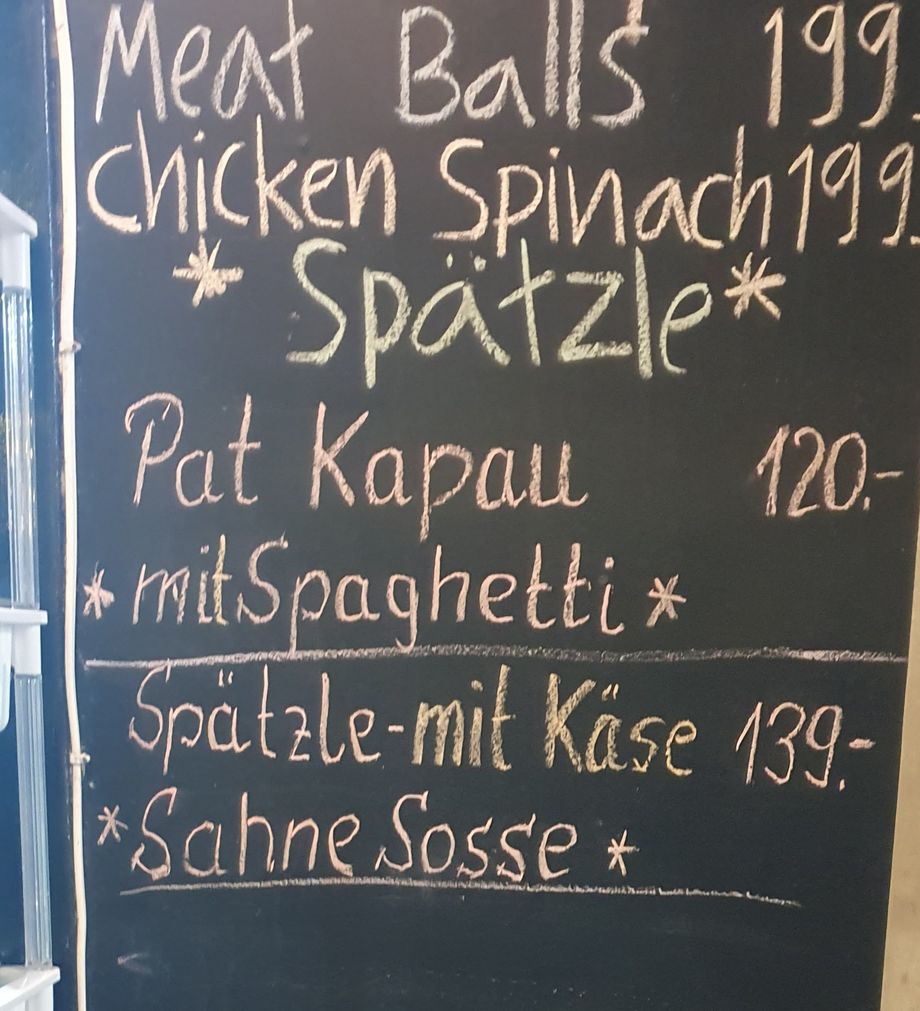 Meat Balls 199.
chicken Spinach 199.
* Spätzle *
Pat Kapau 120.-
* mit Spaghetti *
Spätzle-mit Käse 139.-
* Sahne Sosse *